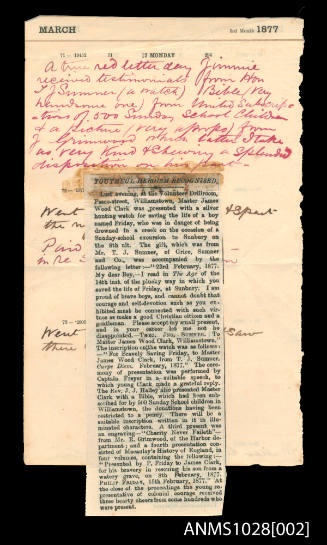 MARCH
3rd Month 1877
12 MONDAY
A true red letter day Jimmie
received testimonials from Hon
T J Sumner (a watch) Bible (very
handsome one) from United Subscrip
tions of 500 Sunday School Children
& a picture (very approp) from
Grimwood which latter I take
as very kind & showing a splendid
disposition on his part
YOUTHFUL HEROISM RECOGNISED.
Last evening, at the Volunteer Drillroom,
Pasco-street, Williamstown, Master James
Wood Clark was presented with a silver
hunting watch for saving the life of a boy
named Friday, who was in danger of being
drowned in a creek on the occasion of a
Sunday-school excursion to Sunbury on
the 8th ult. The gift, which was from
Mr. T. J. Sumner, of Grice, Sumner
and Co., was accompanied by the
following letter:—"23rd February, 1877.
My dear Boy,—I read in The Age of the
14th inst. of the plucky way in which you
saved the life of Friday, at Sunbury. I am
proud of brave boys, and cannot doubt that
courage and self-devotion such as you ex-
hibited must be connected with such vir-
tues as make a good Christian citizen and a
gentleman. Please accept my small present,
and in your career let me not be
disappointed.—THEO. JNO. SUMNER.
Master James Wood Clark, Williamstown."
The inscription on the watch was as follows:—
"For Bravely Saving Friday, to Master
James Wood Clark, from T. J. Sumner.
Carpe Diem. February, 1877." The cere-
mony of presentation was performed by
Captain Frayer in a suitable speech, to
which young Clark made a grateful reply.
The Rev. J. J. Halley also presented Master
Clark with a Bible, which had been sub-
scribed for by 500 Sunday School children in
Williamstown, the donations having been
restricted to a penny. There will be a
suitable inscription written in it in illu-
minated characters. A third present was
an engraving—"Charity Never Faileth"—
from Mr. E. Grimwood, of the Harbor de-
partment; and a fourth presentation con-
sisted of Macaulay's History of England, in
four volumes, containing the following:—
"Presented by P. Friday to James Clark,
for his bravery in rescuing his son from a
watery grave, on 8th February, 1877.
PHILIP FRIDAY, 15th February, 1877." At
the close of the proceedings the young re-
presentative of colonial courage received
three hearty cheers from some hundreds who
were present.
Went
& Spent
the
Paid
in re
Went
& saw
there
ANMS1028[002]